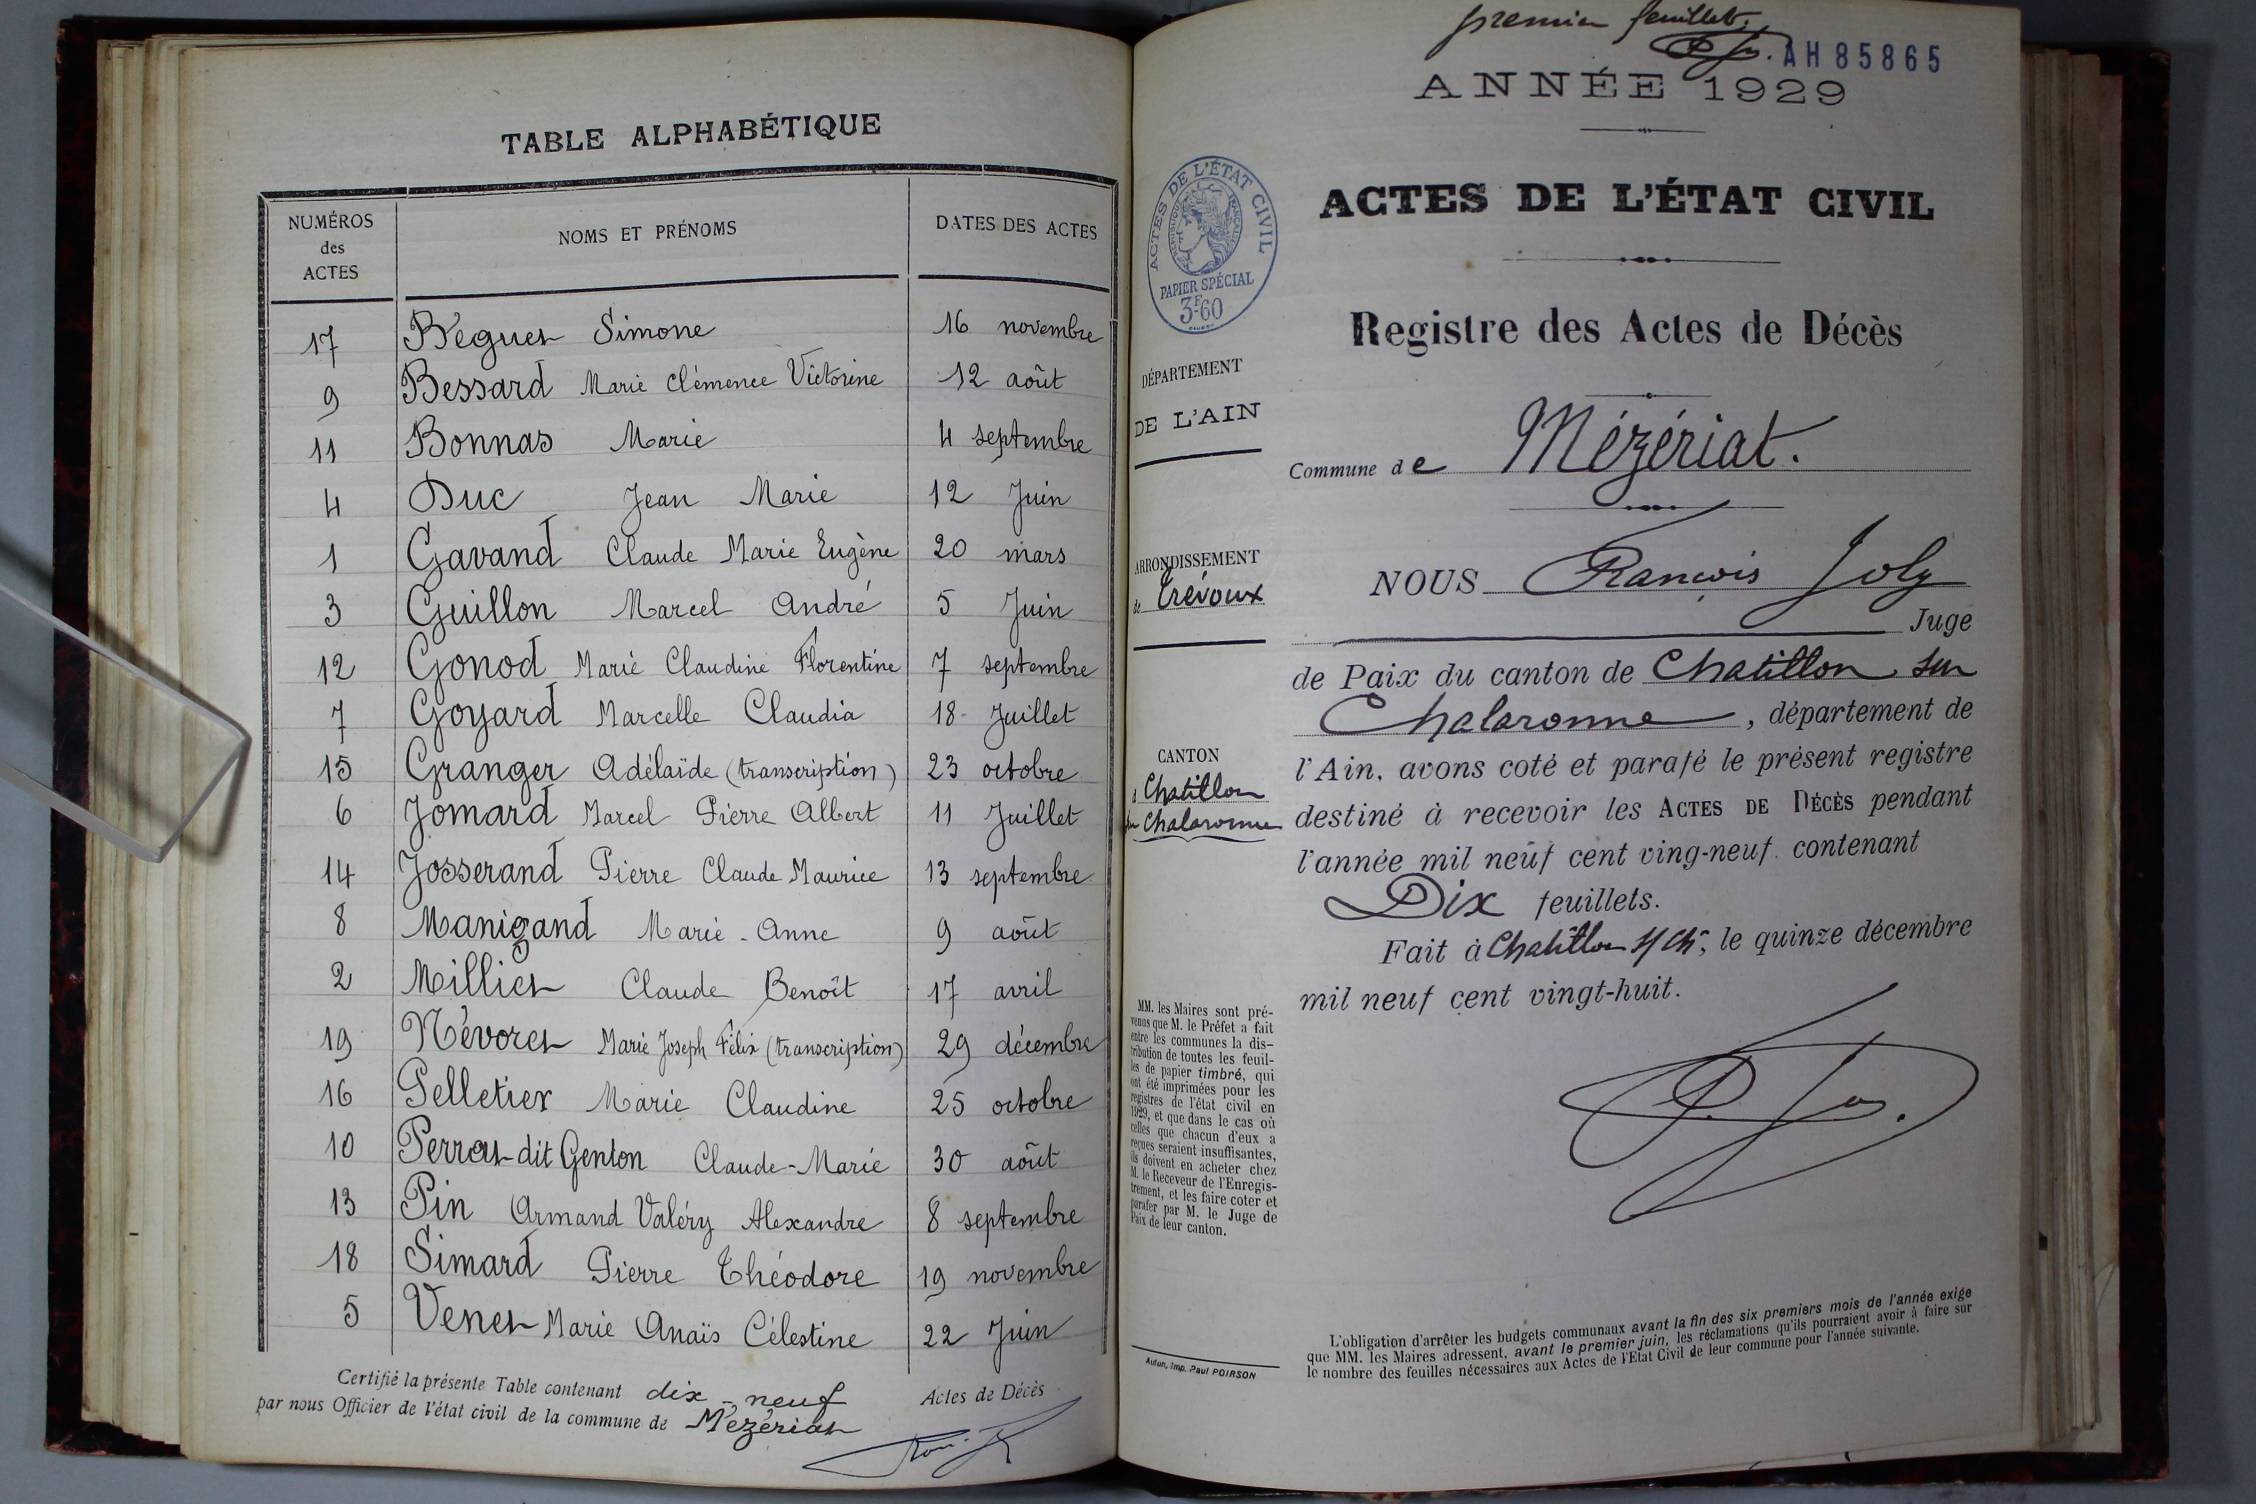 TABLE ALPHABÉTIQUE
NUMÉROS des ACTES NOMS ET PRÉNOMS DATES DES ACTES
17 Béguet Simone 16 novembre
9 Bessard Marie Clémence Victorine 12 août
11 Bonnas Marie 4 septembre
4 Duc Jean Marie 12 Juin
1 Gavand Claude Marie Eugène 20 mars
3 Guillon Marcel André 5 Juin
12 Gonod Marie Claudine Florentine 7 septembre
7 Goyard Marcelle Claudia 18 Juillet
15 Granger Adélaïde (transcription) 23 octobre
6 Jomard Marcel Pierre Albert 11 Juillet
14 Josserand Pierre Claude Maurice 13 septembre
8 Manigand Marie-Anne 9 août
2 Milliet Claude Benoît 17 avril
19 Névoret Marie Joseph Félix (transcription) 29 décembre
16 Pelletier Marie Claudine 25 octobre
10 Perrat-dit Genton Claude-Marie 30 août
13 Pin Armand Valéry Alexandre 8 septembre
18 Simard Pierre Théodore 19 novembre
5 Venet Marie Anaïs Célestine 22 Juin
Certifié la présente Table contenant dix-neuf Actes de Décès
par nous Officier de l'état civil de la commune de Mézériat
premier feuillet.
AH85865
ANNÉE 1929
ACTES DE L'ÉTAT CIVIL
Registre des Actes de Décès
ACTES DE L'ÉTAT CIVIL
RÉPUBLIQUE FRANÇAISE
PAPIER SPÉCIAL
3F60
DÉPARTEMENT
DE L'AIN
ARRONDISSEMENT
de Trévoux
CANTON
Chatillon
Chalaronne
MM. les Maires sont pré-
venus que M. le Préfet a fait
entre les communes la dis-
tribution de toutes les feuil-
les de papier timbré, qui
ont été imprimées pour les
registres de l'état civil en
1929, et que dans le cas où
celles que chacun d'eux a
reçues seraient insuffisantes,
ils doivent en acheter chez
M. le Receveur de l'Enregis-
trement, et les faire coter et
parafer par M. le Juge de
Paix de leur canton.
Autun, Imp. Paul POIRSON
Commune de Mézériat.
NOUS François Joly
Juge
de Paix du canton de Chatillon sur
Chalaronne, département de
l'Ain, avons coté et parafé le présent registre
destiné à recevoir les ACTES DE DÉCÈS pendant
l'année mil neuf cent ving-neuf. contenant
Dix feuillets.
Fait à Chatillon s/ Ch, le quinze décembre
mil neuf cent vingt-huit.
L'obligation d'arrêter les budgets communaux avant la fin des six premiers mois de l'année exige
que MM. les Maires adressent, avant le premier juin, les réclamations qu'ils pourraient avoir à faire sur
le nombre des feuilles nécessaires aux Actes de l'Etat Civil de leur commune pour l'année suivante.